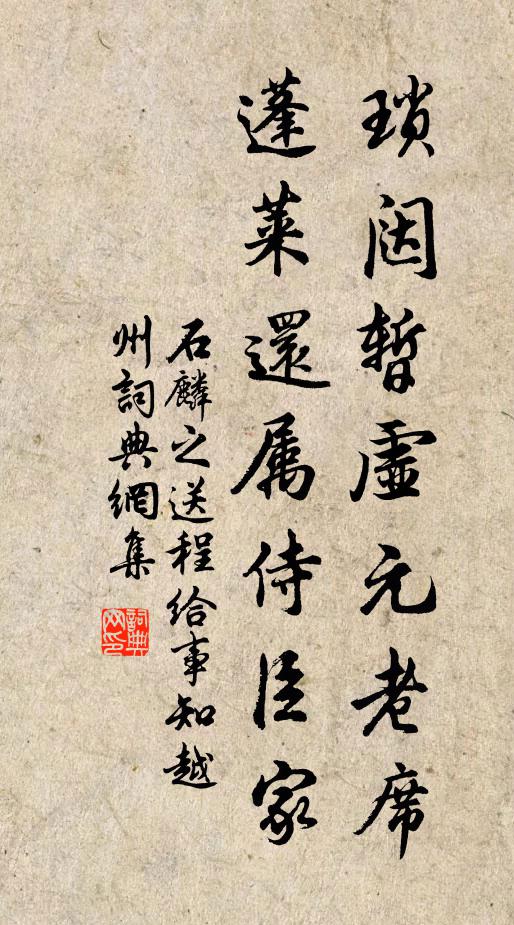 瑣闼暫虛元老席
蓬萊還屬侍臣家
石麟之送程給事知越
州詞典網集
詞典网印